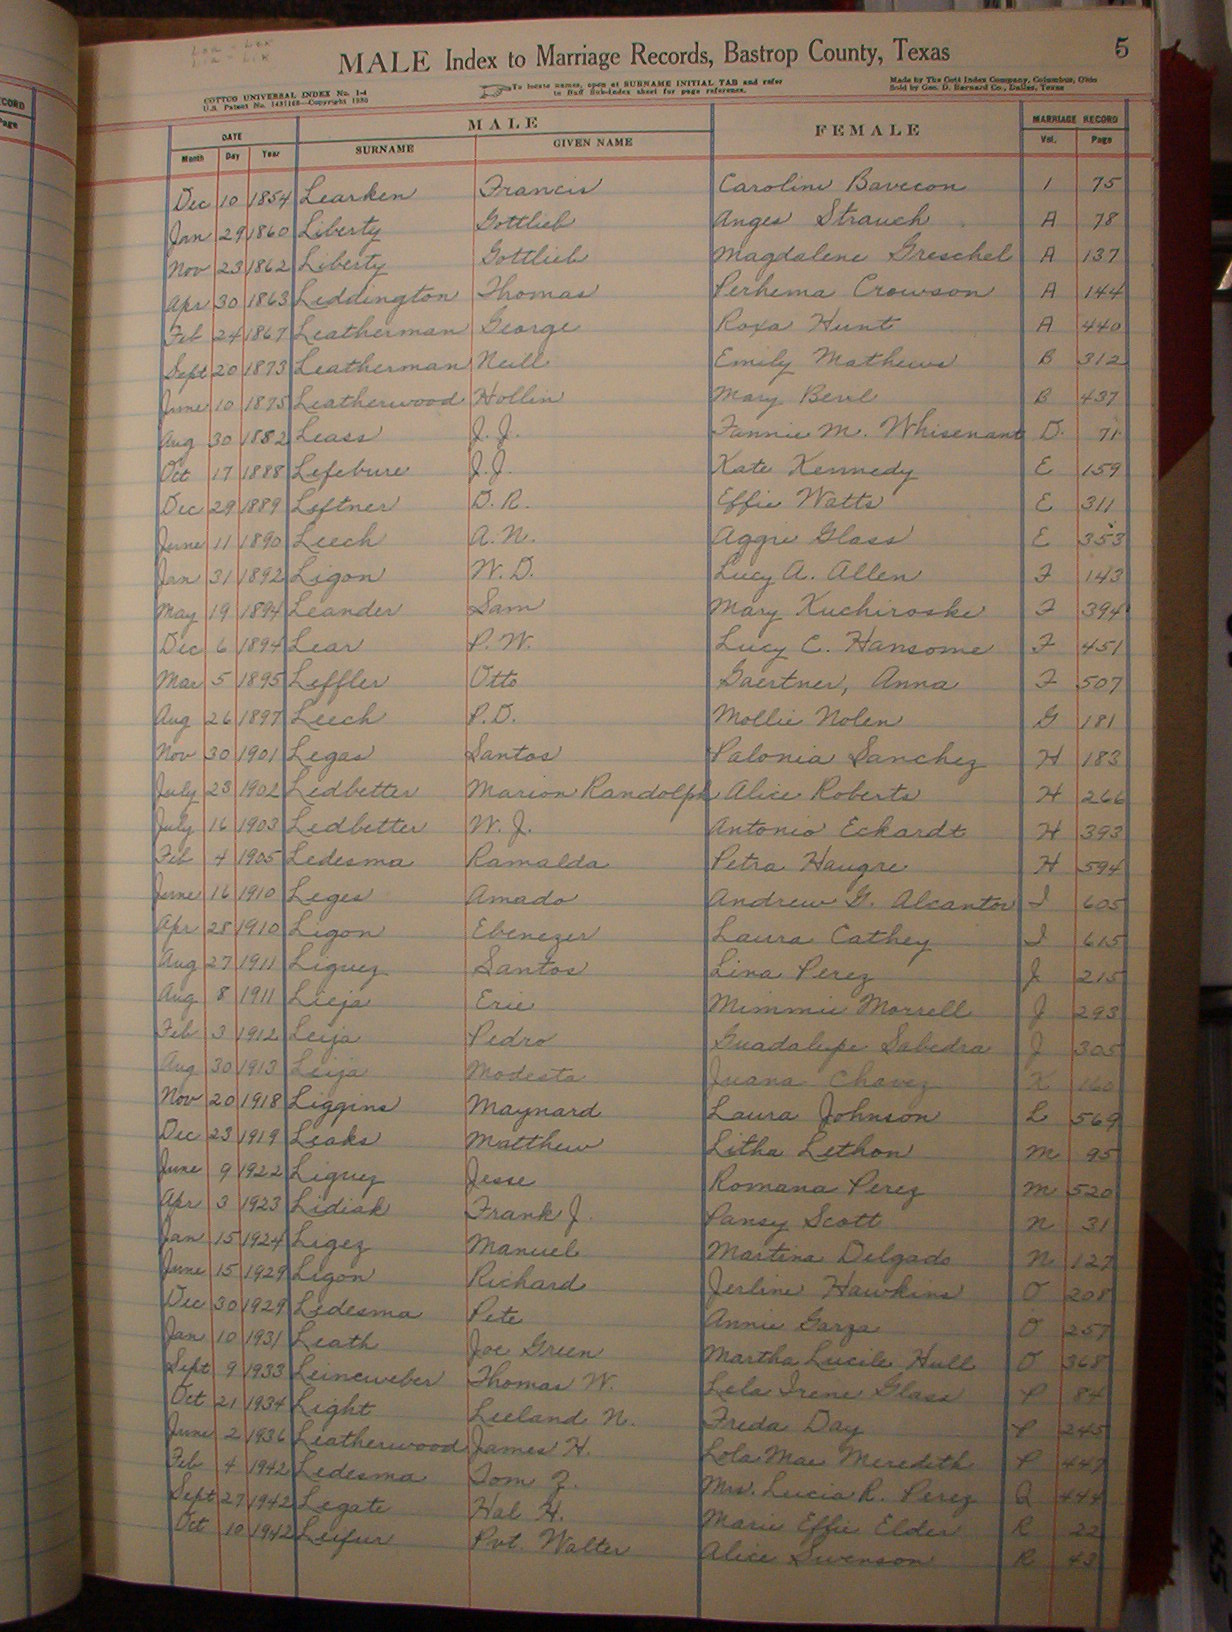 5
MALE Index to Marriage Records, Bastrop County, Texas
COTTCO UNIVERSAL INDEX No. 1-4
U.S. Patent No. 1431168—Copyright 1930
To locate names, open at SURNAME INITIAL TAB and refer
to Buff Sub-Index sheet for page reference.
Made by The Cott Index Company, Columbus, Ohio
Sold by Geo. D. Barnard Co., Dallas, Texas
DATE MALE FEMALE MARRIAGE RECORD
Month Day Year SURNAME GIVEN NAME Vol. Page
Dec 10 1854 Learken Francis Caroline Bavecon 1 75
Jan 29 1860 Liberty Gottlieb Anges Strauch A 78
Nov 23 1862 Liberty Gottlieb Magdalene Greschel A 137
Apr 30 1863 Leddington Thomas Perhema Crowson A 144
Feb 24 1867 Leatherman George Roxa Hunt A 440
Sept 20 1873 Leatherman Neill Emily Mathews B 312
June 10 1875 Leatherwood Hollin Mary B 437
Aug 30 1882 Leass J. J. Fannie M. Whisenant D. 71
Oct 17 1888 Lefebure J. J. Kate Kennedy E 159
Dec 29 1889 Leftner D. R. Effie Watts E 311
June 11 1890 Leech A. N. Aggie Glass E 353
Jan 31 1892 Ligon W. D. Lucy A. Allen F 143
May 19 1894 Leander Sam Mary Kuchiroske F 394
Dec 6 1894 Lear P. W. Lucy C. Hansome F 451
Mar 5 1895 Leffler Otto Gaertner, Anna F 507
Aug 26 1897 Leech P. D. Mollie Nolen G 181
Nov 30 1901 Legas Santos Palonia Sanchez H 183
July 23 1902 Ledbetter Marion Randolph Alice Roberts H 266
July 16 1903 Ledbetter W. J. Antonio Eckardt H 393
Feb 4 1905 Ledesma Ramalda Petra Haugre H 594
June 16 1910 Leges Amado Andrew G. Alcantor I 605
Apr 28 1910 Ligon Ebenezer Laura Cathey I 615
Aug 27 1911 Liguez Santos Lina Perez J 215
Aug 8 1911 Lieja Erie Mimmie Morrell J 293
Feb 3 1912 Leija Pedro Guadalupe Sabedra J 305
Aug 30 1913 Leija Modesta Juana Chavez K 160
Nov 20 1918 Liggins Maynard Laura Johnson L 569
Dec 23 1919 Leaks Matthew Litha Lethon M 95
June 9 1922 Liguez Jesse Romana Perez M 520
Apr 3 1923 Lidiak Frank J. Pansy Scott N 31
Jan 15 1924 Ligez Manuel Martina Delgado N 127
June 15 1929 Ligon Richard Jerline Hawkins O 208
Dec 30 1929 Ledesma Pete Annie Garza O 257
Jan 10 1931 Leath Joe Green Martha Lucile Hull O 368
Sept 9 1933 Leineweber Thomas W. Lela Irene Glass P 84
Oct 21 1934 Light Leeland N. Freda Day P 245
June 2 1936 Leatherwood James H. Lola Mae Meredith P 447
Feb 4 1942 Ledesma Tom Z. Mrs. Lucia R. Perez Q 444
Sept 27 1942 Legate Hal H. Marie Effie Elder R 22
Oct 10 1942 Leifur Pvt. Walter Alice Swenson R 43